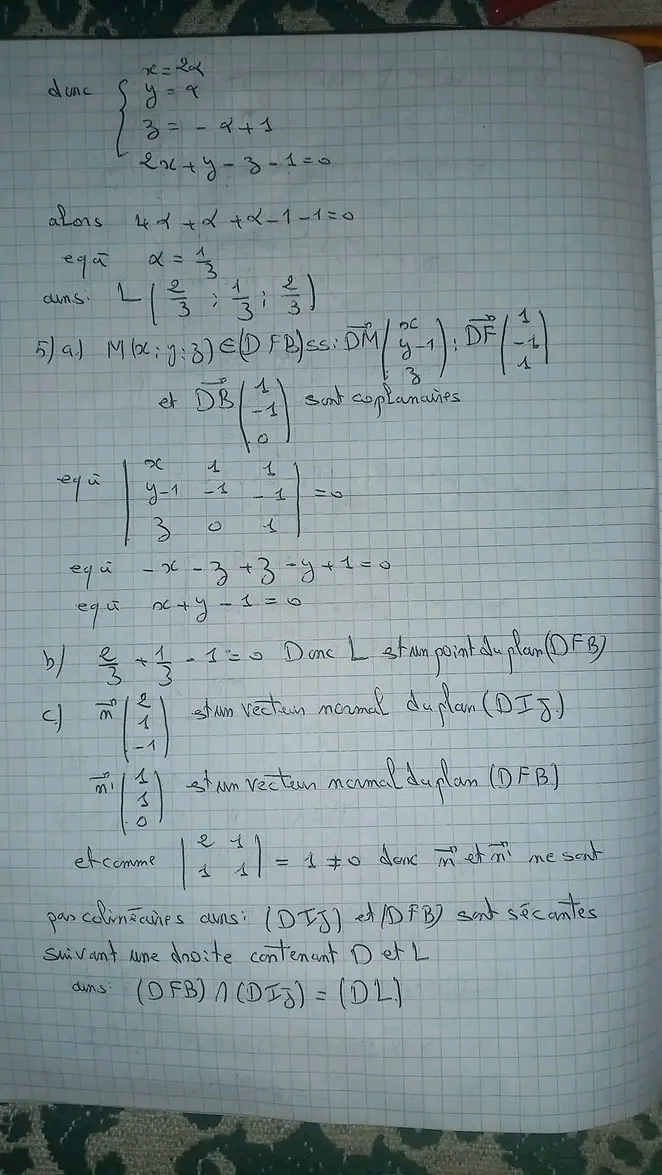 donc { x = 2α
y = α
z = - α + 1
2x + y - z - 1 = 0
alors 4α + α + α - 1 - 1 = 0
equi α = 1/3
ainsi L ( 2/3 ; 1/3 ; 2/3 )
5) a) M(x; y; z) ∈ (DFB) ssi DM→ (x, y-1, z) ; DF→ (1, -1, 1)
et DB→ (1, -1, 0) sont coplanaires
equi | x 1 1 |
| y-1 -1 -1 | = 0
| z 0 1 |
equi -x - z + z - y + 1 = 0
equi x + y - 1 = 0
b) 2/3 + 1/3 - 1 = 0 Donc L est un point du plan (DFB)
c) n→ (2, 1, -1) est un vecteur normal du plan (DIJ)
n'→ (1, 1, 0) est un vecteur normal du plan (DFB)
et comme | 2 1 |
| 1 1 | = 1 ≠ 0 donc n→ et n'→ ne sont
pas colinéaires ainsi (DIJ) et (DFB) sont sécantes
suivant une droite contenant D et L
ainsi (DFB) ∩ (DIJ) = (DL)